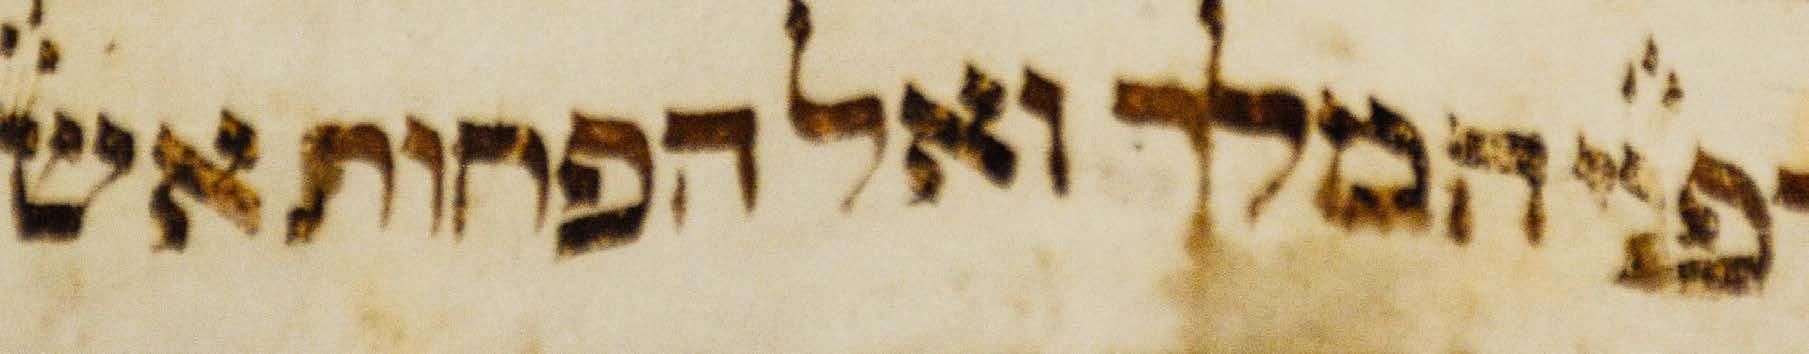 פני המלך ואל הפחות אש